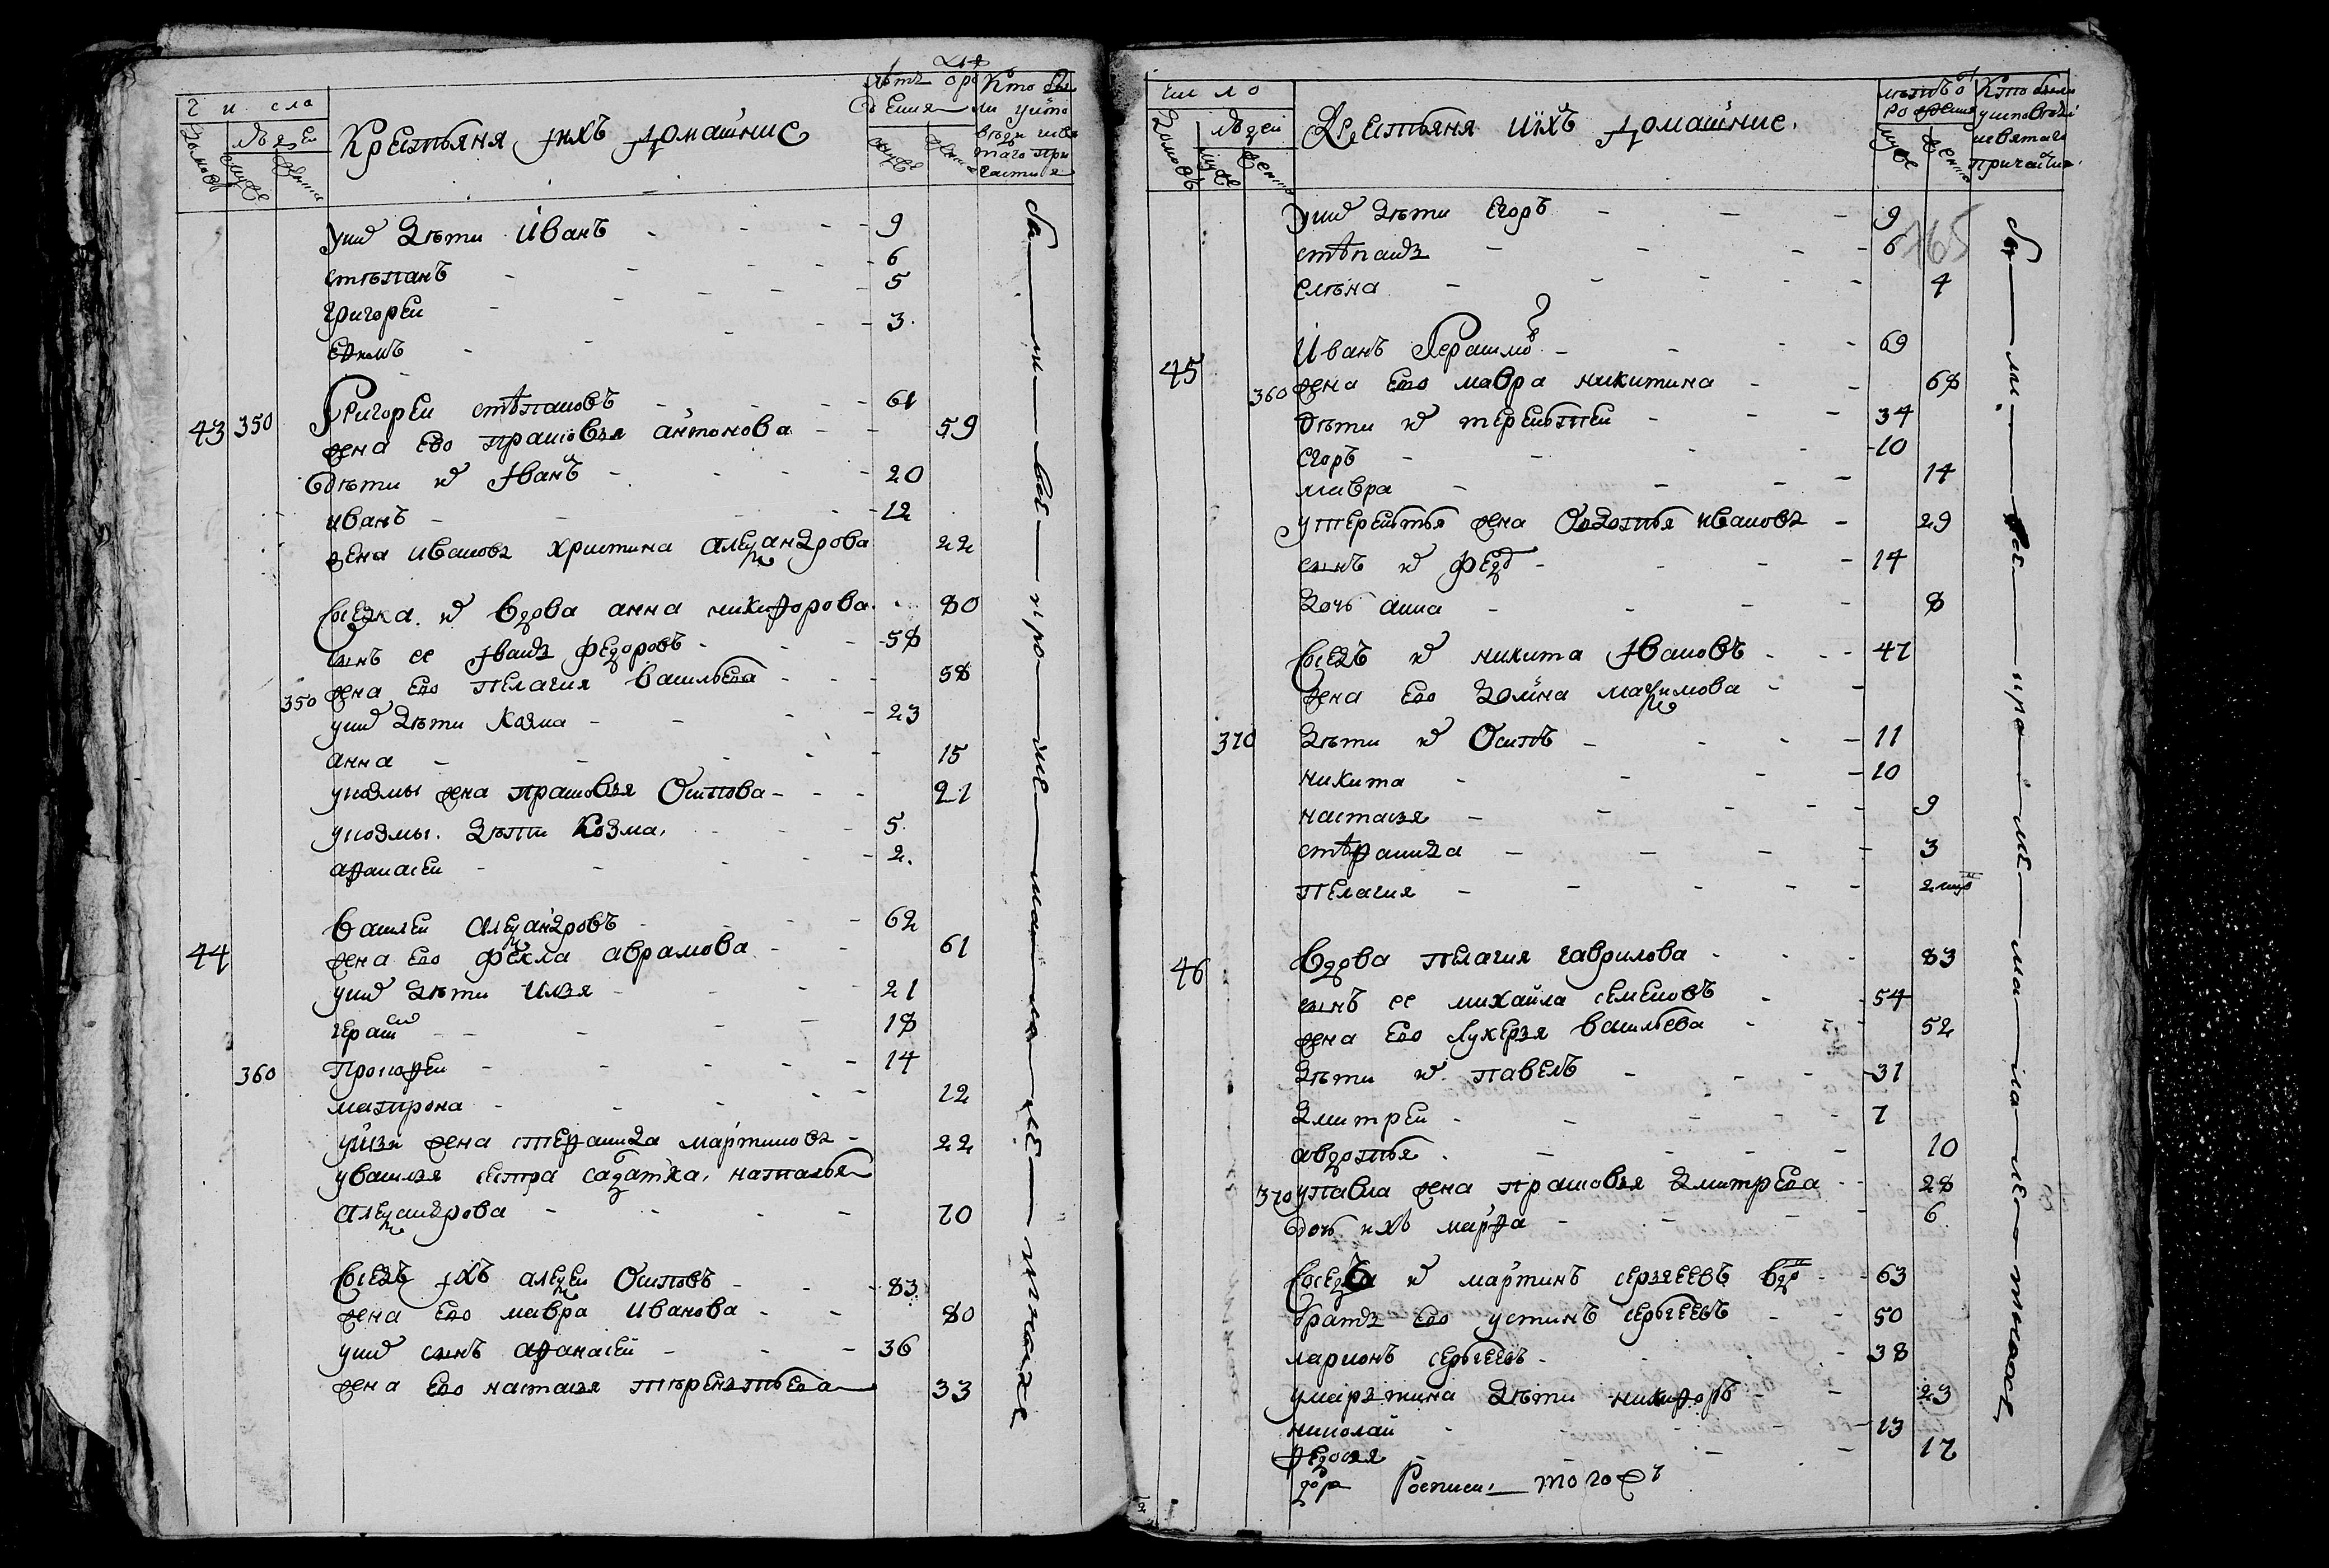 числа
Домовъ
людей
муже
женска
Крестьяня ихъ домашние
лѣтъ от ро
жения
муже
женска
Кто были
у испо
вѣди и свя
таго при
частия
У них дѣти Иванъ 9
стѣпанъ 6
григореи 5
ефимъ 3
43 350 Григореи стѣпановъ 61
жена ево прасковья антонова 59
дѣти их Иванъ 20
иванъ 12
жена иванова христина александрова 22
соседка их вдова анна никифорова 80
сынъ ее иванъ федоровъ 58
350 жена ево пелагия васильева 58
у них дѣти козма 23
анна 15
у козмы жена прасковья Осипова 21
у козмы дѣти козма 5
афанасеи 2
василеи александровъ 62
44 жена ево фекла аврамова 61
у них дѣти илья 21
герасим 18
360 Прокофеи 14
матрона 12
у ильи жена стефанида мартинова 22
у василья сестра салдатка наталья
александрова 70
соседъ ихъ алексеи Осиповъ 83
жена ево мавра иванова 80
у них сынъ афанасеи 36
жена ево настасья терентьева 33
бы ли всѣ кро ме ма ла ле т них
число
Домовъ
людей
муже
женска
Крестьяня ихъ домашние
лѣтъ от
рожения
муже
женска
Кто были
у исповѣди
и святаго
причастия
У них дѣти Егоръ 9
165
стѣпанъ 6
елѣна 4
45 Иванъ Герасимов 69
360 жена ево мавра никитина 68
дѣти их терентеи 34
егоръ 10
мавра 14
у терентья жена Овдотья иванова 29
сынъ их федор 14
дочь анна 8
соседъ их никита ивановъ 47
жена ево домна максимова
370 дѣти их Осипъ 11
никита 10
настасья 9
стефанида 3
пелагия 2
46 вдова пелагия гаврилова 83
сынъ ее михаила семеновъ 54
жена ево лукерья васильева 52
дѣти их павелъ 31
дмитреи 7
авдотья 10
370 у павла жена прасковья дмитрева 28
дочь ихъ марфа 6
соседъ их мартинъ сергеевъ вдов 63
братъ ево устинъ сергеевъ 50
ларионъ сергеевъ 38
у мартина дѣти никифоръ 23
николаи 13
федосья 17
росписи того ж
бы ли всѣ кро ме ма ла ле т них